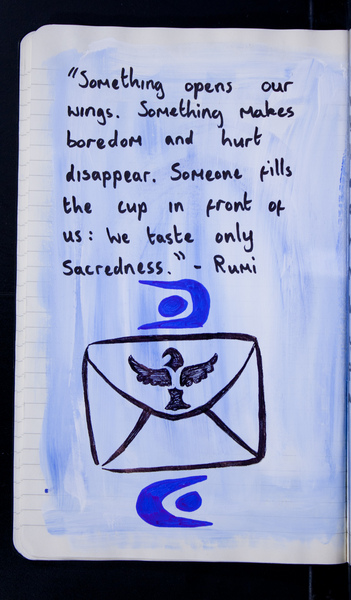 "Something opens our
wings. Something makes
boredom and hurt
disappear. Someone fills
the cup in front of
us: We taste only
Sacredness." - Rumi